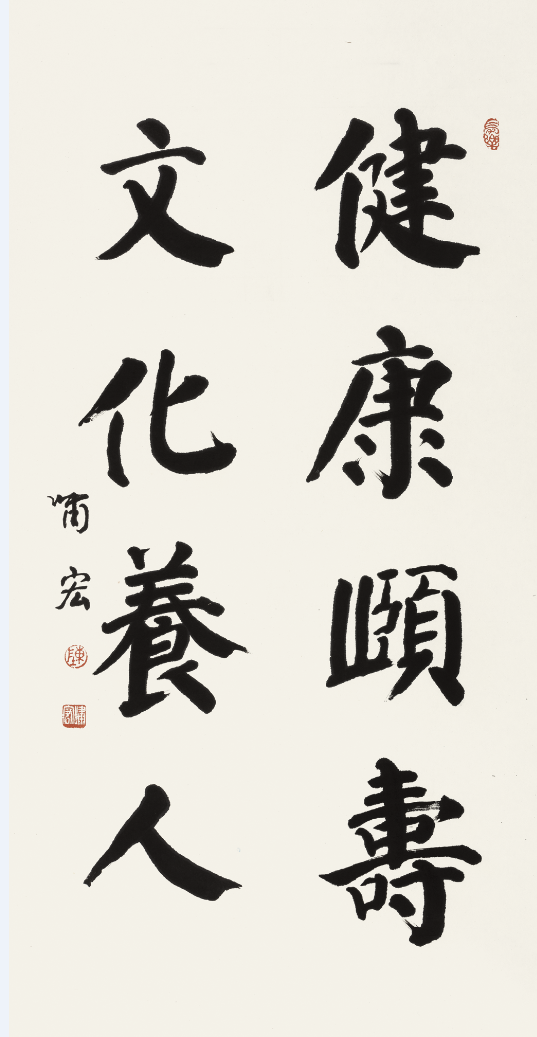 健康頤壽
文化養人
宏